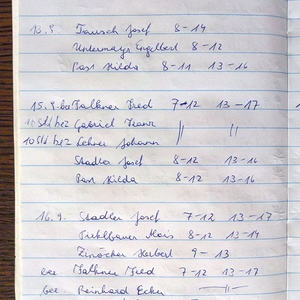 13.9. Tausch Josef 8-14
Untermayr Engelbert 8-12
Past Hilda 8-11 13-16
15.9. Falkner Fred 7-12 13-17
10 Std bez Gabriel Franz " "
10 Std bez Lehner Johann
Stadler Josef 8-12 13-16
Past Hilda 8-12 13-16
16.9. Stadler Josef 7-12 13-17
Alois 8-12 13-17
Herbert 9-13
bez Falkner Fred 7-12 13-17
bez Reinhard Ecker